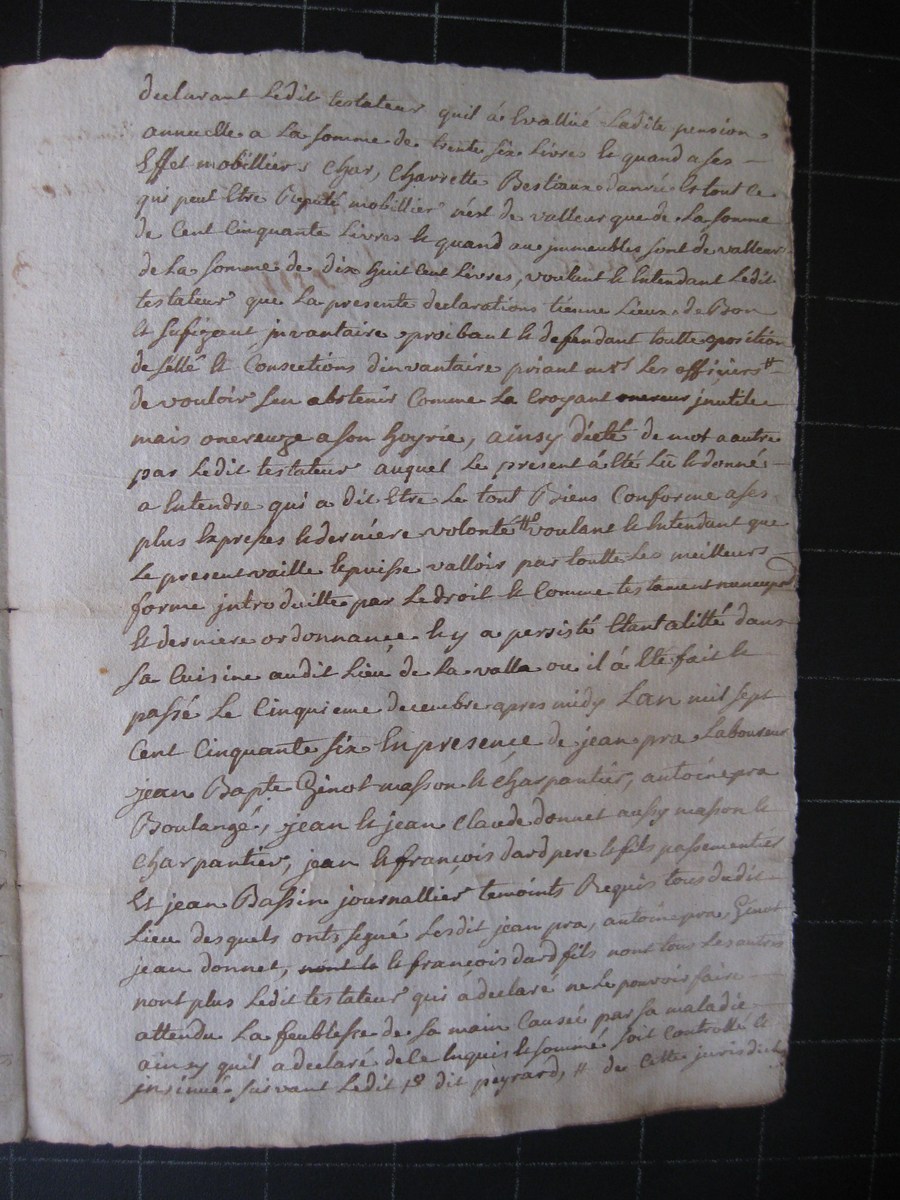 declarant Ledit testateur quil á Evallué Ladite pension
annuelle a La somme de trente six Livres & quand a ses
Effet mobillier, Char, Charrette Bestiaux danrée & tout ce
qui peut Etre Reputé mobillier n'est de valleur que de La somme
de Cent Cinquante Livres & quand aux immeubles sont de valleur
de La somme de dix huit Cent Livres, voulent & Entendant Ledit
testateur que La presente declarations tienne Lieux de Bon
et sufizant jnvantaire proibant & defendant toutte oposition
de sellé & Confections dinvantaire priant mrs Les officiers
de vouloir sen abstenir Comme La Croyant jnutile
mais onereuze a son hoyrie, ainsy dicté de mot a autre
par Ledit testateur auquel Le present á Eté Lû & donné
a Entendre qui a dit Etre Le tout Riens Conforme a ses
plus Expresses & derniére volonté voulant & Entendant que
Le present vaille & puisse valloir par toutte Les meilleurs
forme jntroduitte par Le droit & Comme testament nuncupatif
& derniere ordonnance & y a persisté Etant alitté dans
sa Cuisine audit Lieu de La valla ou il á Eté fait &
passé Le Cinquieme decembre apres midy Lan mil sept
Cent Cinquante six En presence de jean pra Laboureur
jean Bapte Ginot masson & Charpantier, antoine pra
Boulangé, jean & jean Claude donnet aussy masson &
Charpantier, jean & françois dard pere & fils passementier
Et jean Bassin journallier temoints Requis tous dudit
Lieu desquels onts signé Lesdit jean pra, antoine pra, Ginot
jean donnet, & françois dard fils nont tous Les autres
nont plus Ledit testateur qui a declaré ne Le pouvoir faire
attendu La feublesse de sa main Causée par sa maladie
ainsy quil a declaré de ce Enquis & sommé soit Controllé &
jnsinué suivant Ledit dit peyrard, de Cette jurisdict